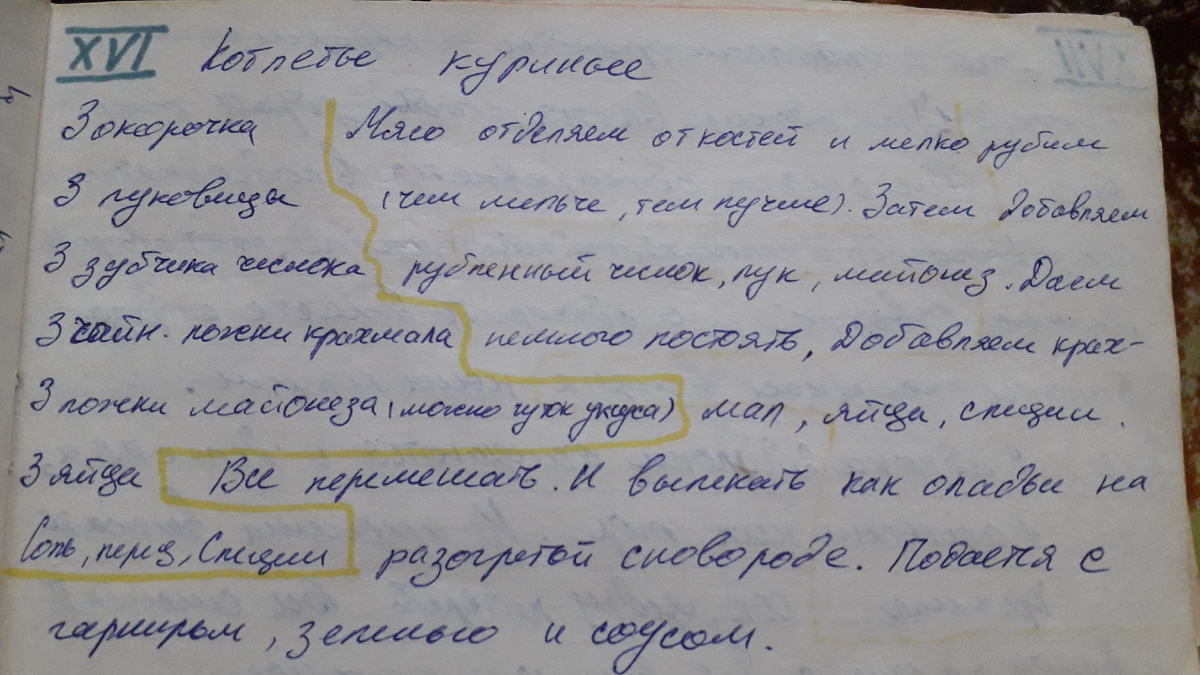 XVI Котлеты куриные
3 окорочка
3 луковицы
3 зубчика чеснока
3 чайн. ложки крахмала
3 ложки майонеза (можно чуток уксуса)
3 яйца
Соль, перец, Специи
Мясо отделяем от костей и мелко рубим
(чем мельче, тем лучше). Затем добавляем
рубленный чеснок, лук, майонез. Даем
немного постоять, Добавляем крах-
мал, яйца, специи.
Все перемешать. И выпекать как оладьи на
разогретой сковороде. Подается с
гарниром, зеленью и соусом.